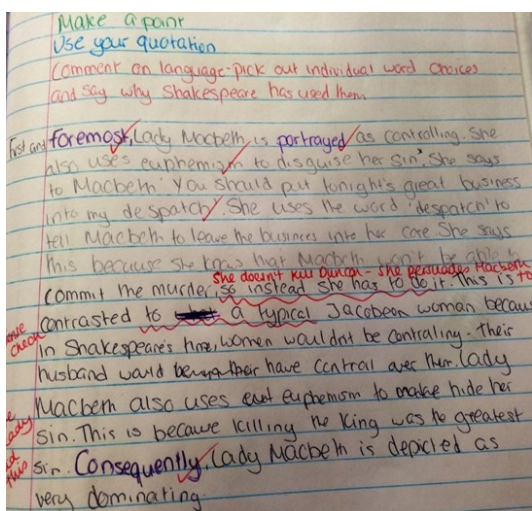 Make a point
Use your quotation
Comment on language-pick out individual word choices
and say why Shakespeare has used them
First and foremost, Lady Macbeth is portrayed as controlling. She
also uses euphemism to disguise her sin. She says
to Macbeth: 'You should put tonight's great business
into my despatch'. She uses the word 'despatch' to
tell Macbeth to leave the business into her care. She says
this because she knows that Macbeth won't be able to
she doesn't kill Duncan - she persuades Macbeth
commit the murder, so instead she has to do it. This is to
contrasted to a typical Jacobean woman because
check
In Shakespeare's time, women wouldnt be controling. Their
husband would have control over them. Lady
Macbeth also uses euphemism to hide her
sin. This is because killing the King was the greatest
this
sin. Consequently, Lady Macbeth is depicted as
very dominating.